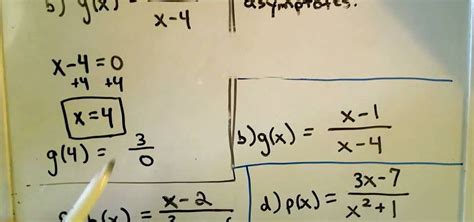 b) g(x) =
x-4
asymptotes.
x-4=0
+4 +4
x=4
g(4) = 3/0
b) g(x) = x-1
x-4
h(x) = x-2
d) p(x) = 3x-7
x²+1